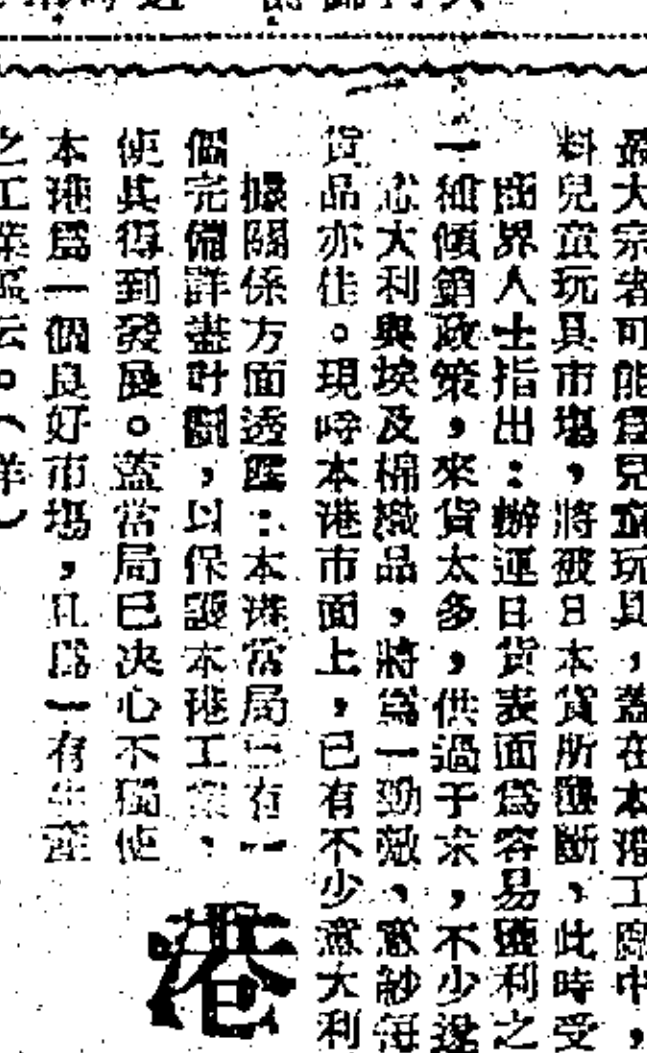 最大宗者可能爲兒童玩具，蓋在本港工廠中，
料兒童玩具市場，將被日本貨所壟斷，此時受
商界人士指出：辦運日貨表面爲容易獲利之
一種傾銷政策，來貨太多，供過于求，不少
意大利與埃及棉織品，將爲一勁敵，意紗每
貨品亦佳。現時本港市面上，已有不少意大利
據關係方面透露：本港當局已有一
個完備詳盡計劃，以保護本港工業，
使其得到發展。蓋當局已决心不獨使
本港爲一個良好市場，且爲一有生產
之工業區云。（祥）
港